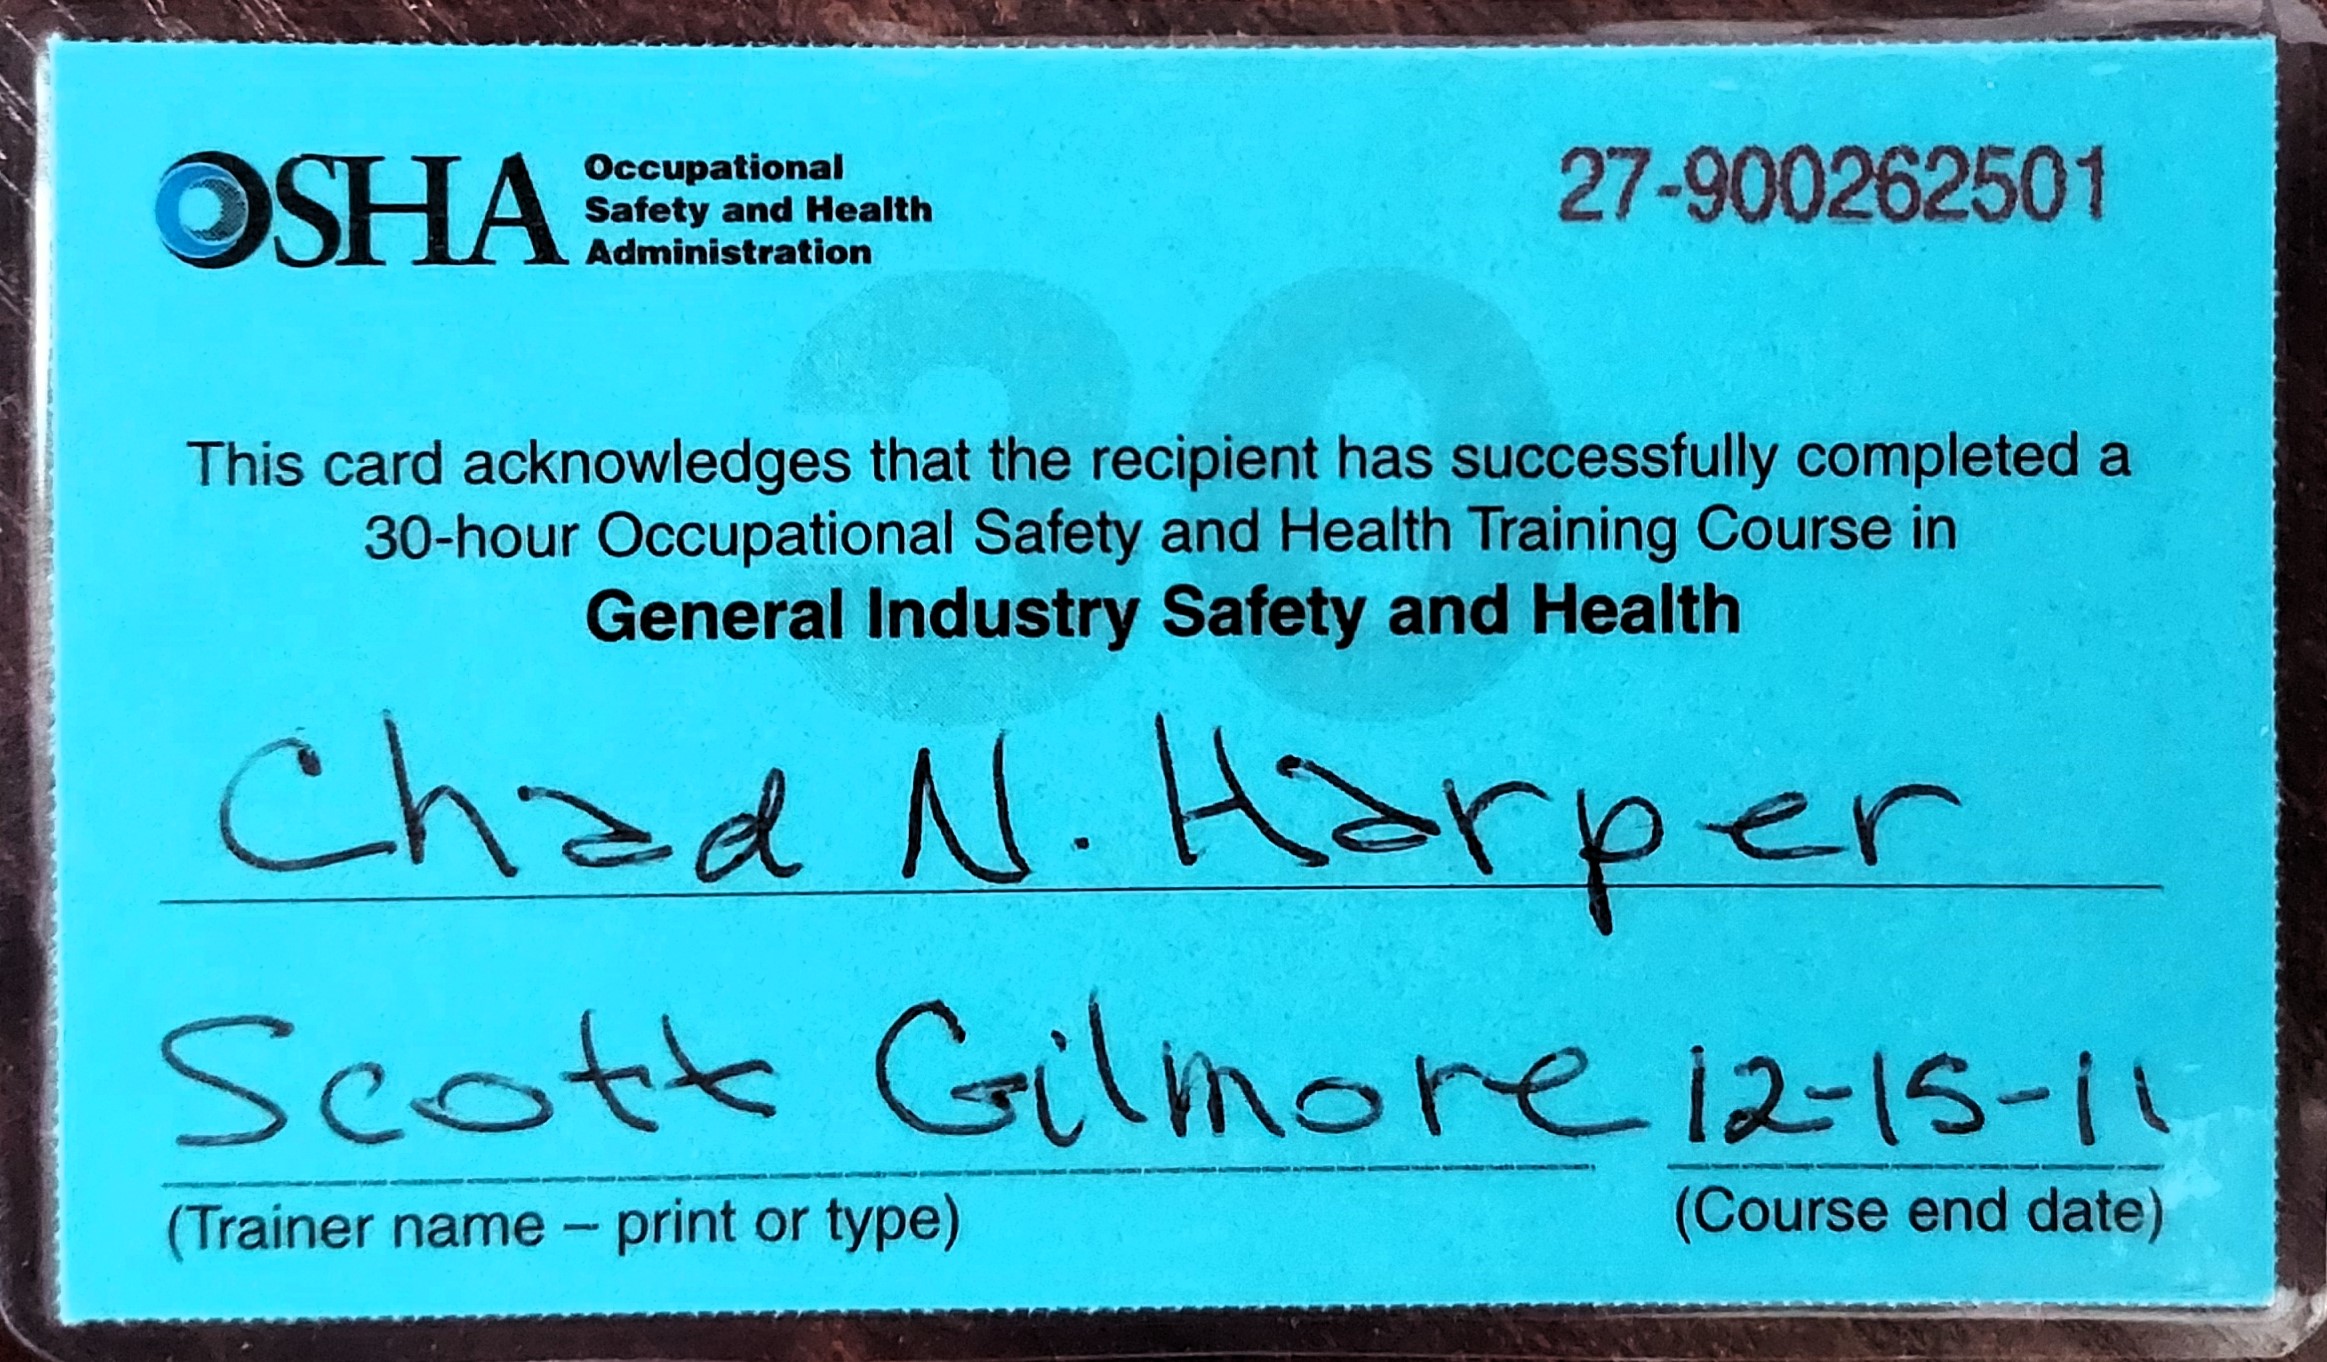 OSHA
Occupational
Safety and Health
Administration
27-900262501
30
This card acknowledges that the recipient has successfully completed a
30-hour Occupational Safety and Health Training Course in
General Industry Safety and Health
Chad N. Harper
Scott Gilmore 12-15-11
(Trainer name – print or type) (Course end date)